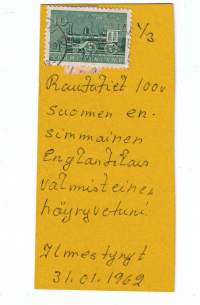 1/3
Rautatiet 100v
Suomen en-
simmäinen
Englantilais
valmisteinen
höyryveturi.
Ilmestynyt
31.01.1962